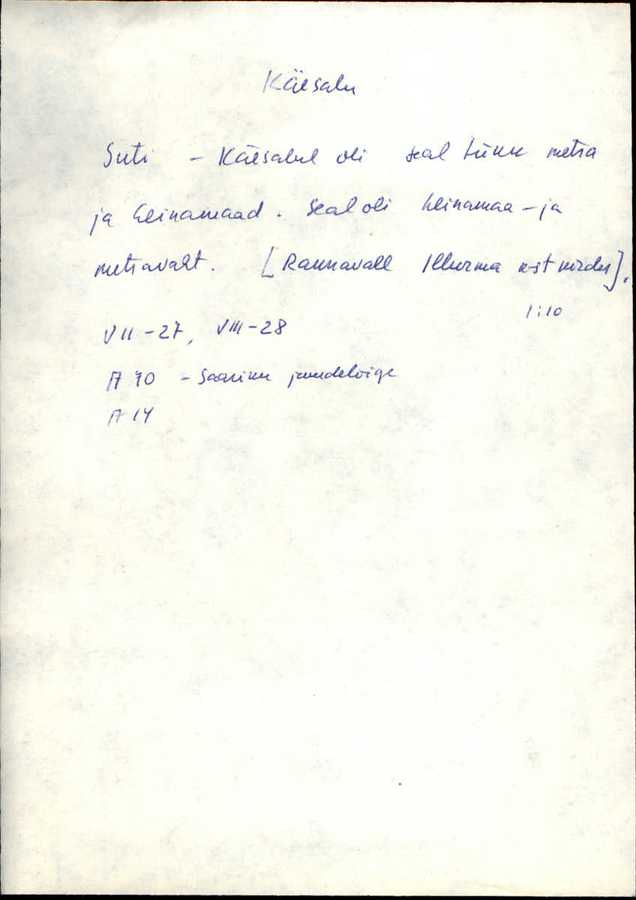 Käesalu
Suti - Käesalul oli seal tükk metsa
ja heinamaad. Seal oli heinamaa- ja
metsavaht. [Rannavalt Ilumäe
1:10
VII-27, VIII-28
A 40 - Saariku juurdelõige
A 14